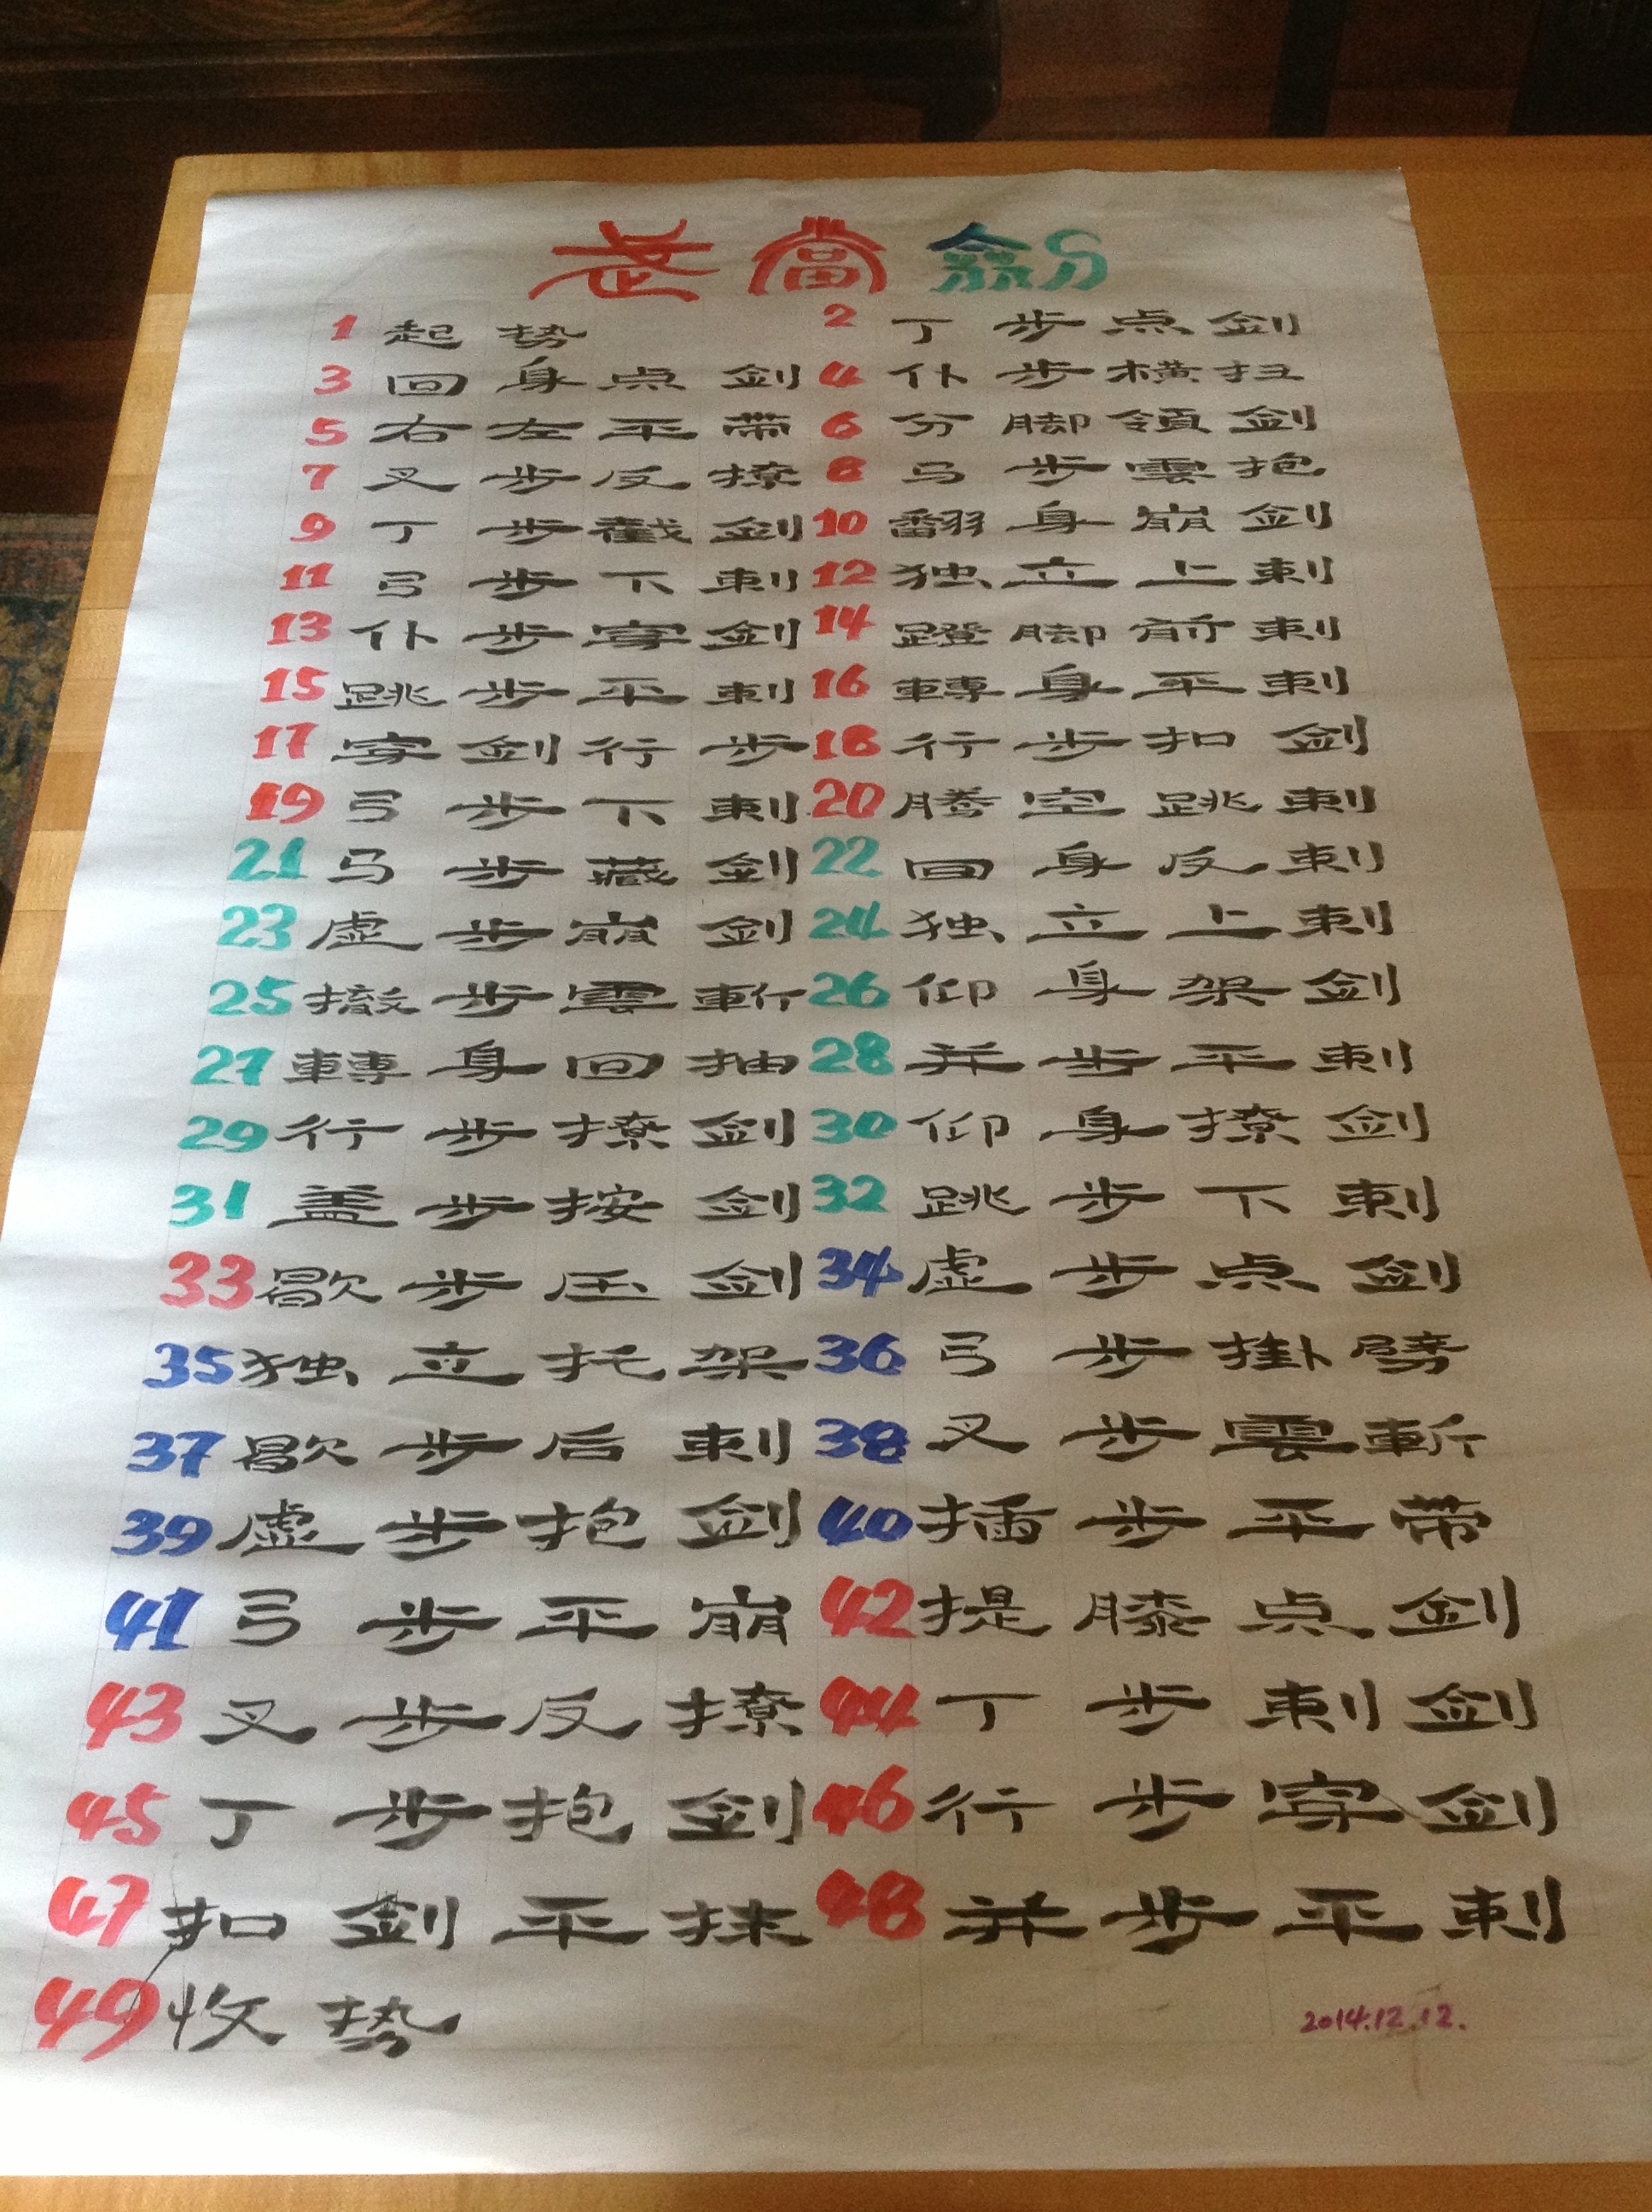 武當劍
1 起势 2 丁步点剑
3 回身点剑 4 仆步横扫
5 右左平带 6 分脚領剑
7 叉步反撩 8 马步雲抱
9 丁步截剑 10 翻身崩剑
11 弓步下刺 12 独立上刺
13 仆步穿剑 14 蹬脚前刺
15 跳步平刺 16 轉身平刺
17 穿剑行步 18 行步扣剑
19 弓步下刺 20 腾空跳刺
21 马步藏剑 22 回身反刺
23 虚步崩剑 24 独立上刺
25 撤步雲斬 26 仰身架剑
27 轉身回抽 28 并步平刺
29 行步撩剑 30 仰身撩剑
31 盖步按剑 32 跳步下刺
33 歇步压剑 34 虚步点剑
35 独立托架 36 弓步掛劈
37 歇步后刺 38 叉步雲斬
39 虚步抱剑 40 插步平带
41 弓步平崩 42 提膝点剑
43 叉步反撩 44 丁步刺剑
45 丁步抱剑 46 行步穿剑
47 扣剑平抹 48 并步平刺
49 收势 2014.12.12.